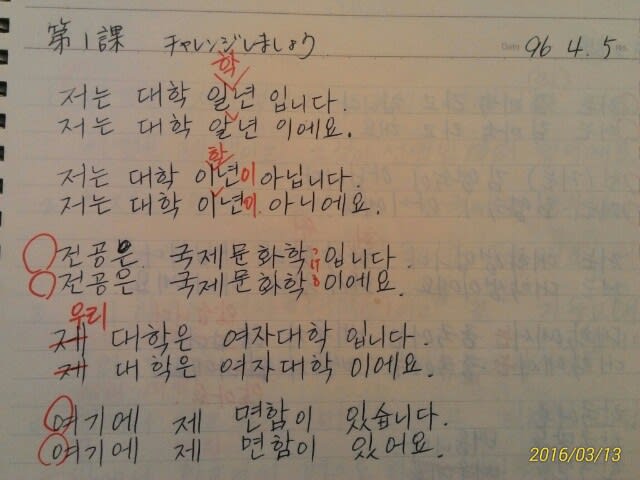 第1課 チャレンジしましょう
Date 96.4.5
학
저는 대학 일년 입니다.
저는 대학 일년 이에요.
학
저는 대학 이년이 아닙니다.
저는 대학 이년이 아니에요.
전공은 국제문화학 입니다.
전공은 국제문화학 이에요.
우리
제 대학은 여자대학 입니다.
제 대학은 여자대학 이에요.
여기에 제 면함이 있습니다.
여기에 제 면함이 있어요.
2016/03/13